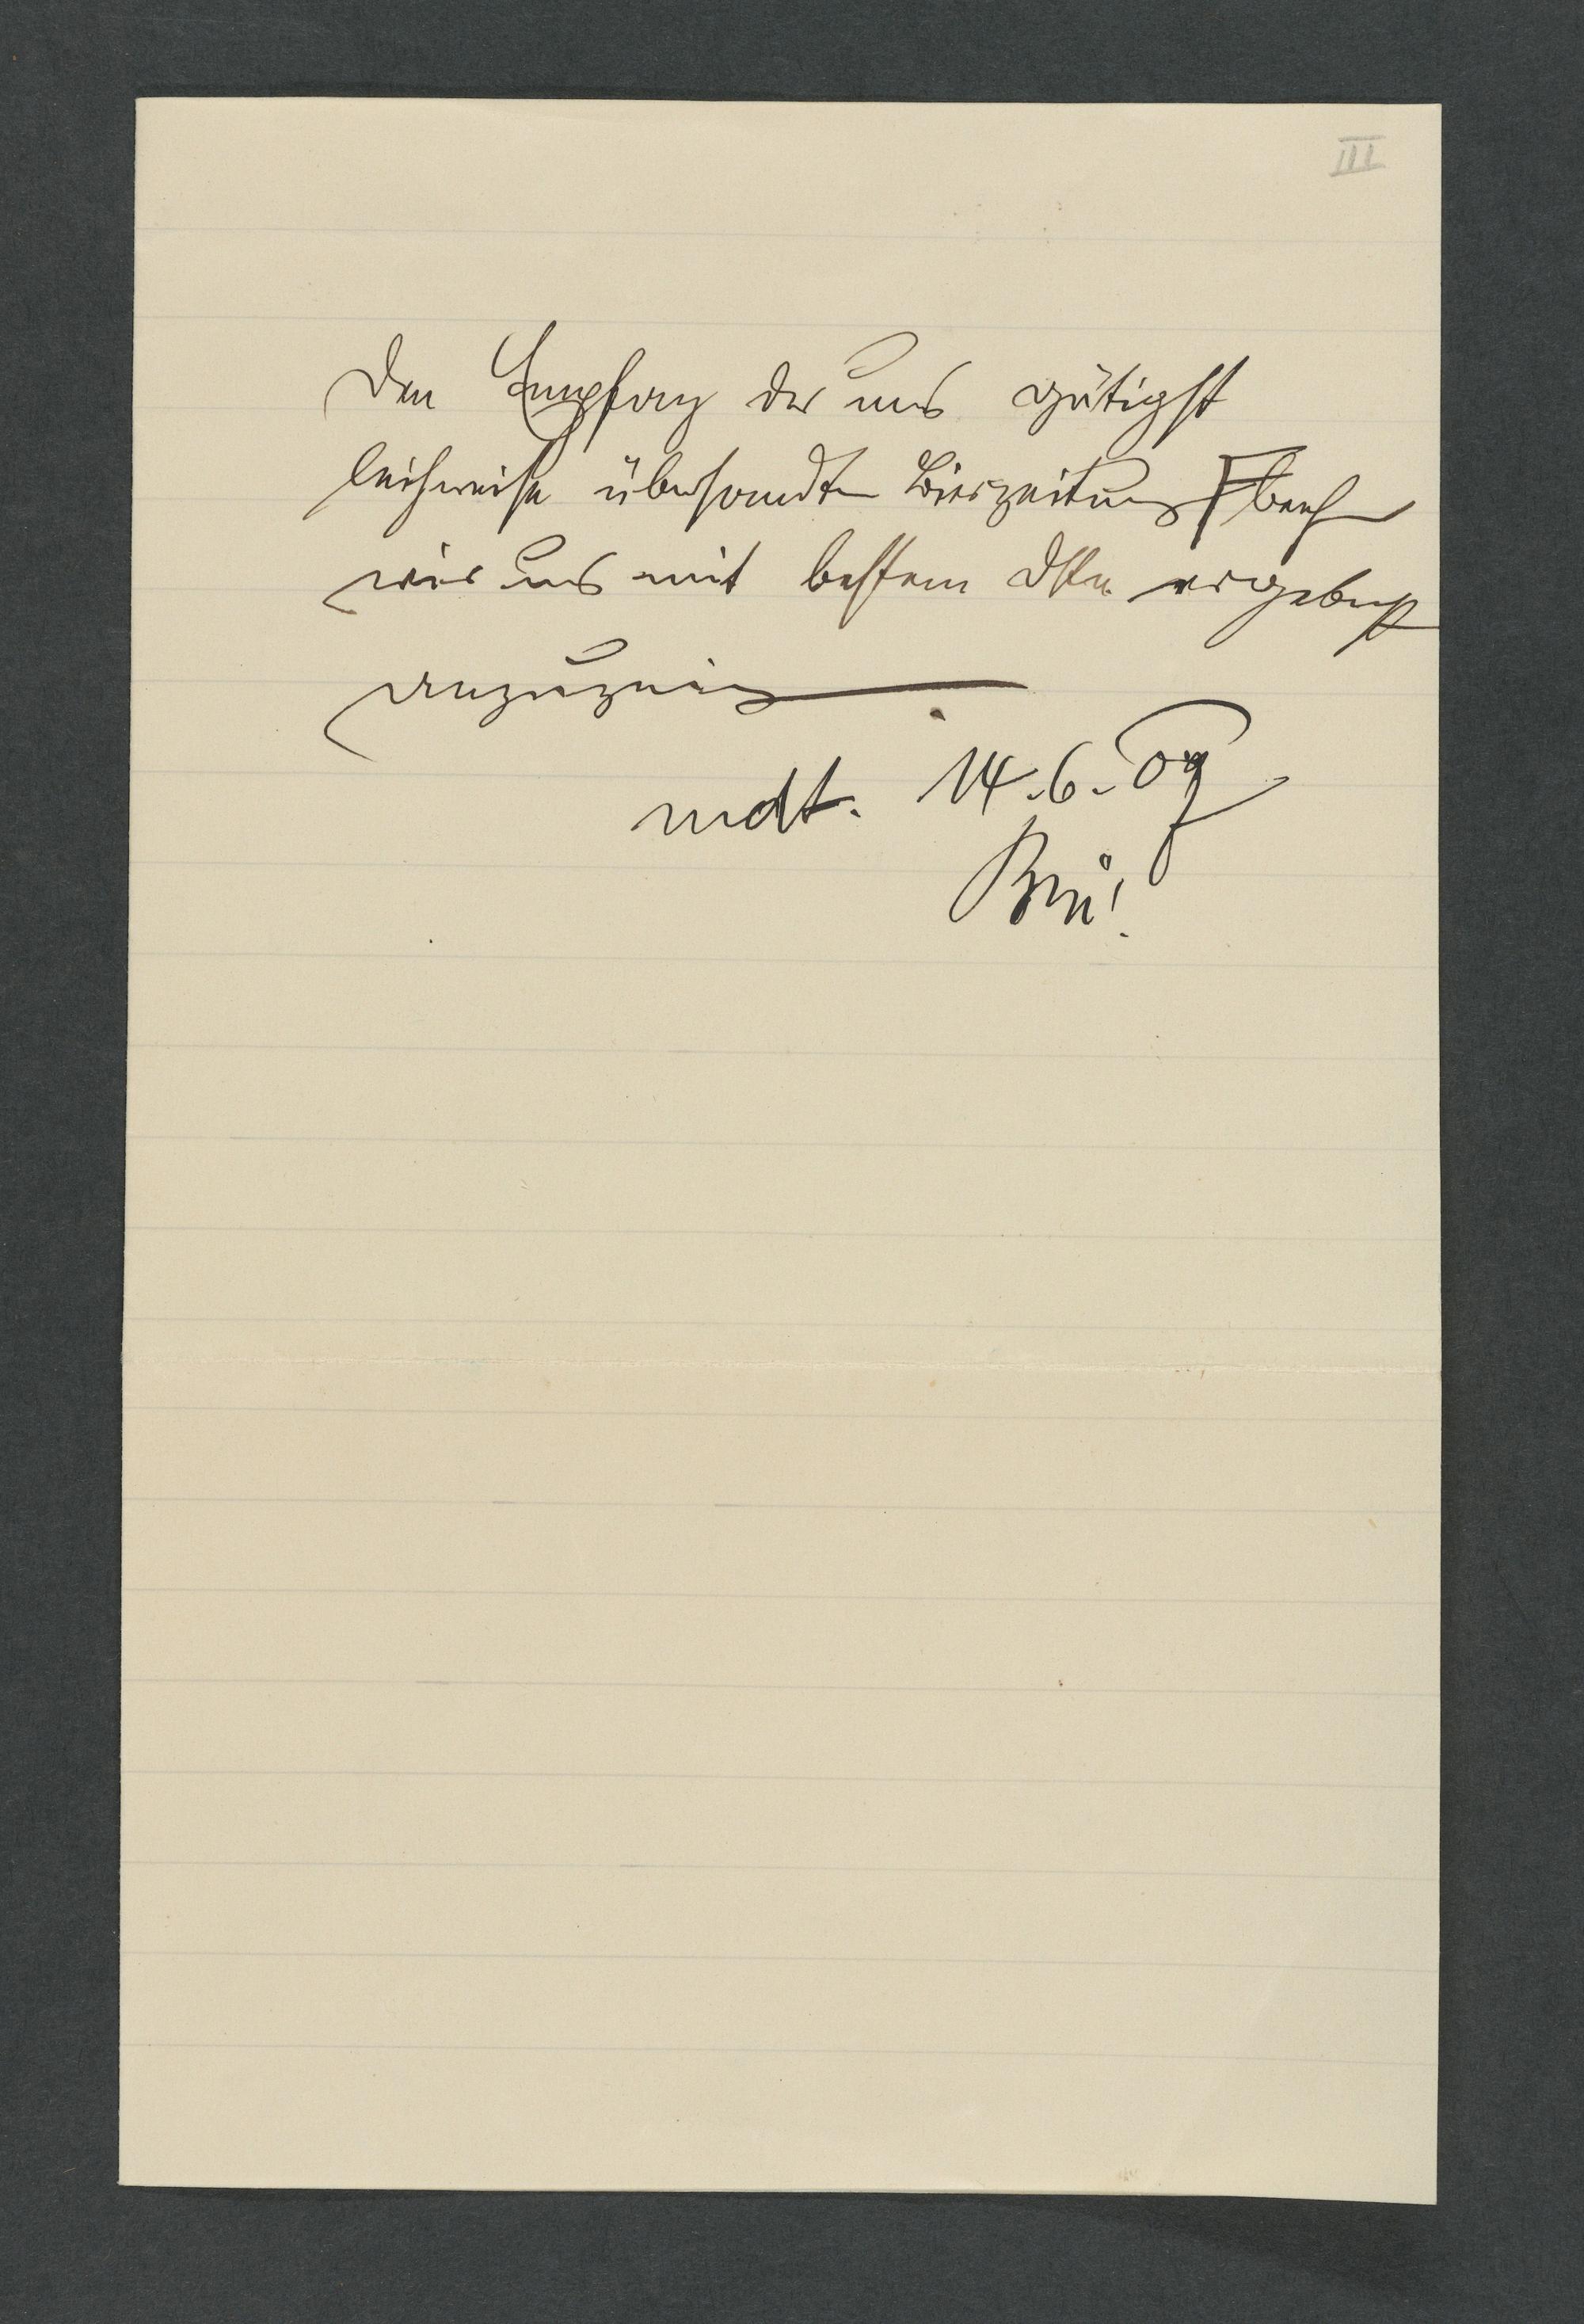 III
Den Empfang der uns gütigst
leihweise übersandten Bierzeitung beehren
wir uns mit bestem Dank ergebenst
anzuzeigen
mdt. 14.6.09
Brü!